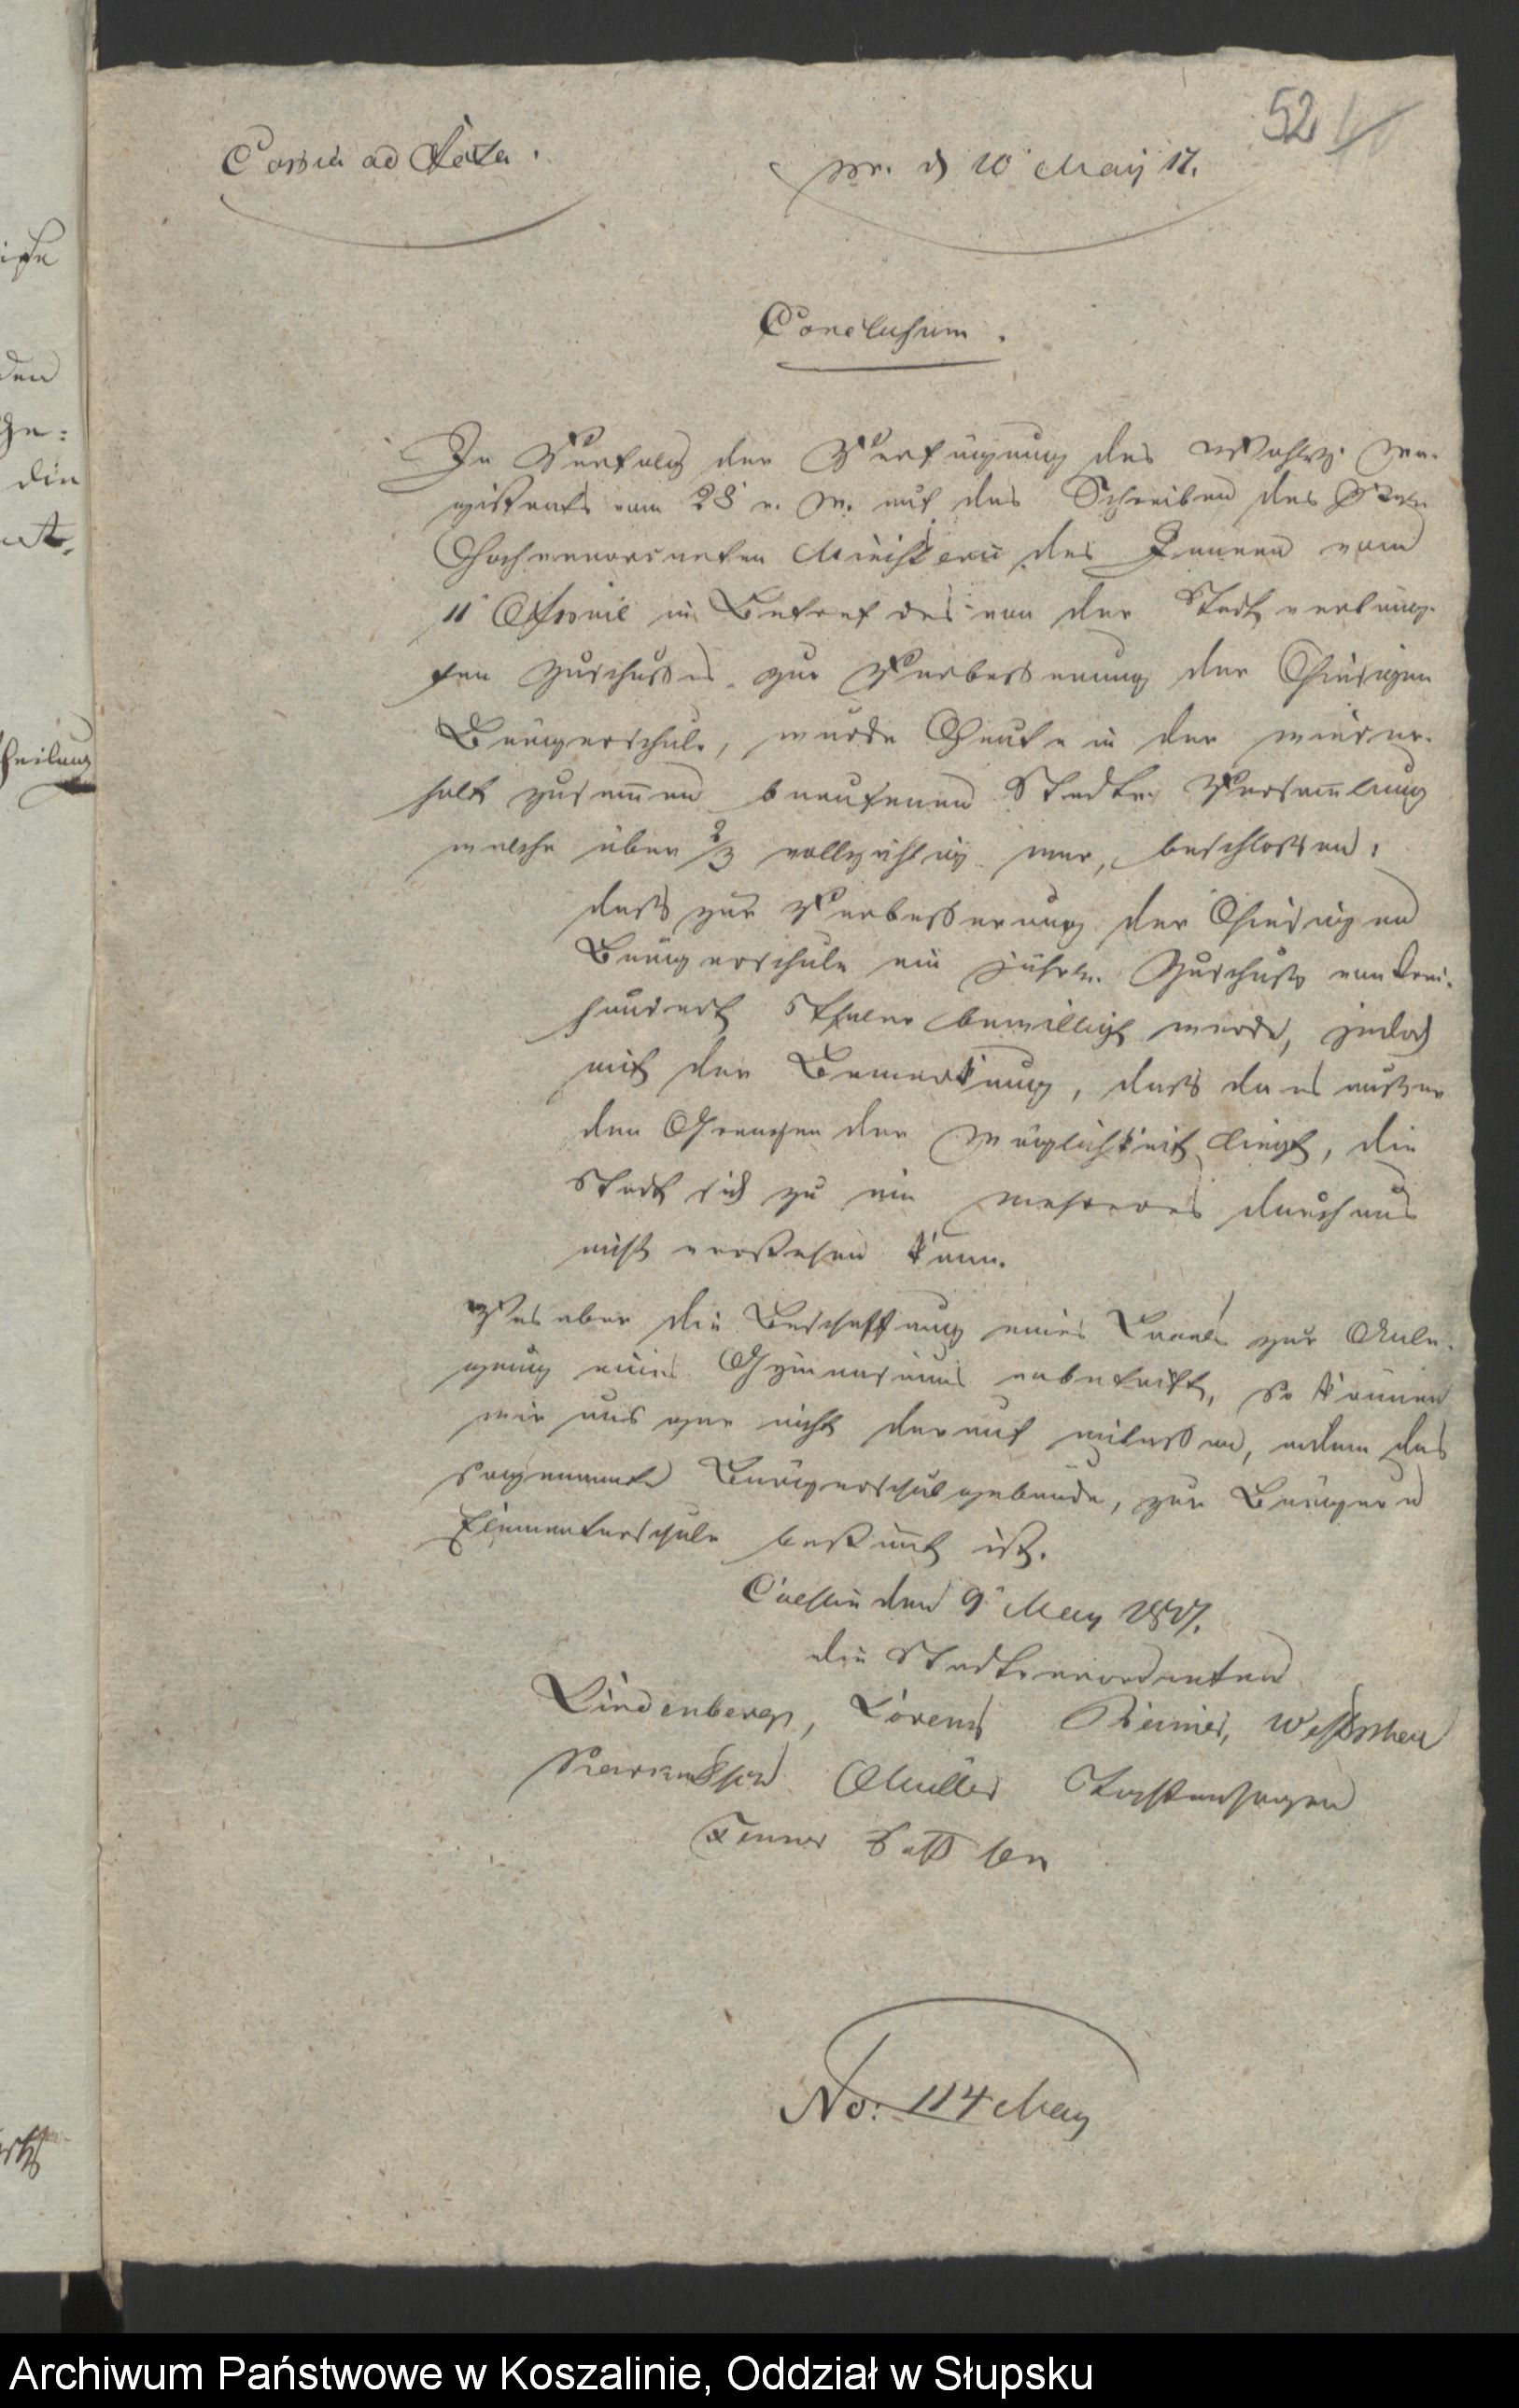 52
Copia ad Acta.
pr. d 10 May 17.
Conclusum.
In Verfolg der Verfügung des Wohllöbl. Ma-
gistrats vom 28 v. M. auf das Schreiben des
Hochverordneten Ministerii des Innern vom
11 April in Betref des von der Stadt verlang-
ten Zuschusses zur Verbesserung der Hiesigen
Bürgerschule, wurde Heute in der wieder-
holt zusam̅en berufenen Stadtv. Versam̅lung
welche über 2/3 vollzählig war, beschlossen,
daß zur Verbesserung der Hiesigen
Bürgerschule ein jährl. Zuschuß von drei-
hundert Thaler bewilligt werde, jedoch
mit der Bemerkung, daß da es außer
den Grenzen der Möglichkeit liegt, die
Stadt sich zu ein mehreres durchaus
nicht verstehen kann.
Was aber die Beschaffung eines Locals zur Anle-
gung eines Gymnasiums anbetrift, so können
wir uns gar nicht darauf einlassen, indem das
sogenannte Bürgerschulgebäude, zur Bürger u
Elementarschule bestim̅t ist.
Cöslin den 9 May 1817.
die Stadtverordneten
Lindenberg, Lorenz Reimer,
Müller
No: 114 May
den
ge:
die
theilung
Archiwum Państwowe w Koszalinie, Oddział w Słupsku